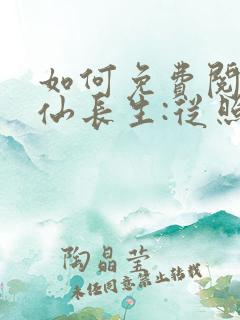 如何免費閱
仙長生:從照
陶晶瑩
未经同意禁止转载